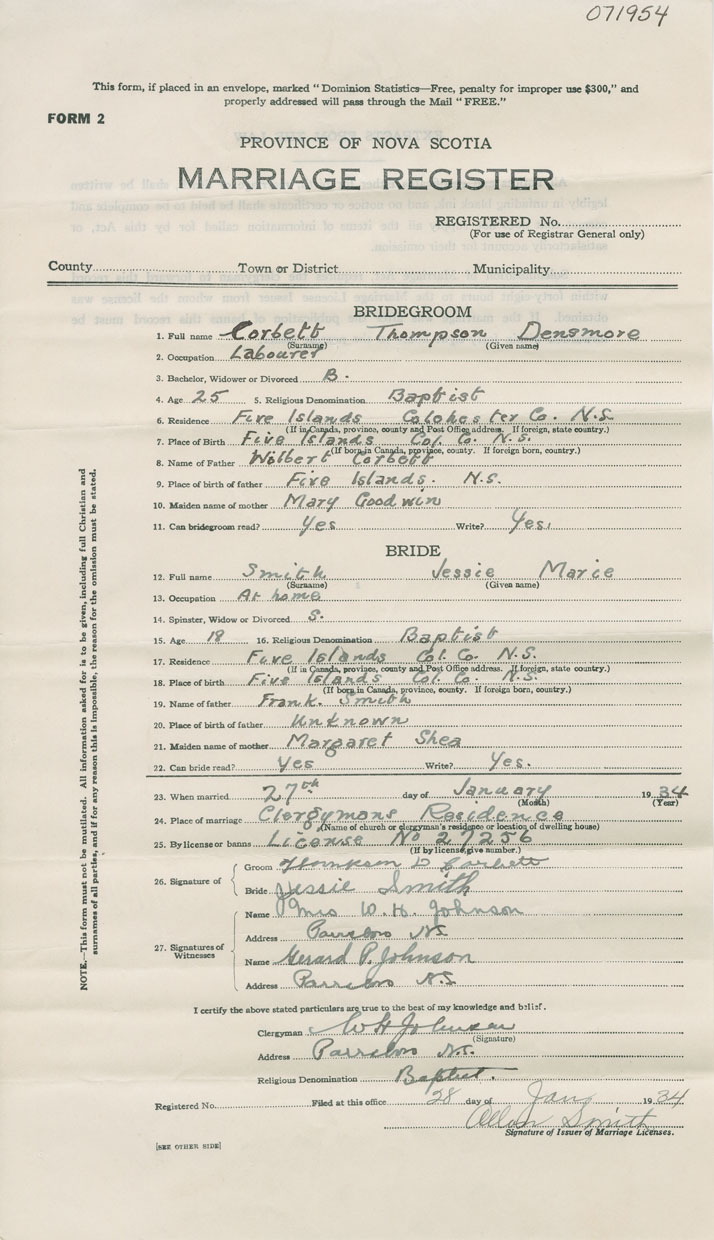 071954
This form, if placed in an envelope, marked "Dominion Statistics—Free, penalty for improper use $300," and
properly addressed will pass through the Mail "FREE."
FORM 2
PROVINCE OF NOVA SCOTIA
MARRIAGE REGISTER
REGISTERED No.
(For use of Registrar General only)
County Town or District Municipality
BRIDEGROOM
1. Full name Corbett Thompson Densmore
(Surname) (Given name)
2. Occupation Labourer
3. Bachelor, Widower or Divorced B.
4. Age 25 5. Religious Denomination Baptist
6. Residence Five Islands Colchester Co. N.S.
(If in Canada, province, county and Post Office address. If foreign, state country.)
7. Place of Birth Five Islands Col. Co. N.S.
(If born in Canada, province, county. If foreign born, country.)
8. Name of Father Wilbert Corbett
9. Place of birth of father Five Islands. N.S.
10. Maiden name of mother Mary Goodwin
11. Can bridegroom read? Yes Write? Yes.
BRIDE
12. Full name Smith Jessie Marie
(Surname) (Given name)
13. Occupation At home
14. Spinster, Widow or Divorced S.
15. Age 18 16. Religious Denomination Baptist
17. Residence Five Islands Col. Co. N.S.
(If in Canada, province, county and Post Office address. If foreign, state country.)
18. Place of birth Five Islands Col. Co. N.S.
(If born in Canada, province, county. If foreign born, country.)
19. Name of father Frank. Smith
20. Place of birth of father Unknown
21. Maiden name of mother Margaret Shea
22. Can bride read? Yes Write? Yes.
23. When married 27th day of January 1934
(Month) (Year)
24. Place of marriage Clergymans Residence
(Name of church or clergyman's residence or location of dwelling house)
25. By license or banns License No 27256
(If by license, give number.)
26. Signature of Groom Thompson D Corbett
Bride Jessie Smith
27. Signatures of Witnesses
Name Mrs W. H. Johnson
Address Parrsboro N.S.
Name Gerard P. Johnson
Address Parrsboro N.S.
I certify the above stated particulars are true to the best of my knowledge and belief.
Clergyman W H Johnson
(Signature)
Address Parrsboro N.S.
Religious Denomination Baptist.
Registered No. Filed at this office 28 day of Jany 1934
Allan Smith
Signature of Issuer of Marriage Licenses.
[SEE OTHER SIDE]
NOTE.—This form must not be mutilated. All information asked for is to be given, including full Christian and
surnames of all parties, and if for any reason this is impossible, the reason for the omission must be stated.